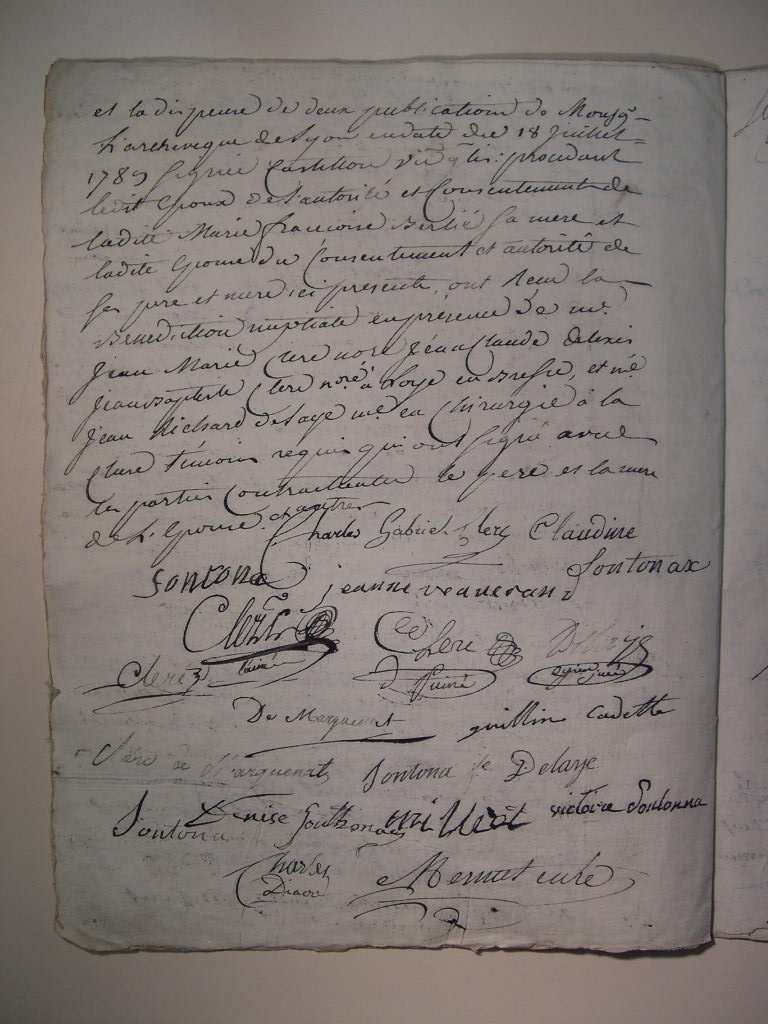 et la dispense de deux publications de Monsgr
L'archeveque de Lyon en date du 18 Juillet
1789 signée Castillon vic. gl. procedant
ledit Epoux de l'autorité et Consentement de
ladite Marie francoise sa mere et
ladite Epouse du Consentement et autorité de
ses pere et mere ici presents, ont Recu la
Benediction nuptiale en présence de mr.
Jean Marie Clere nore Jean Claude
Jean Baptiste Clere nore a Loye en Bresse, et mr.
Jean Richard Delaye me. en Chirurgie à la
Clare témoins requis qui ont signé avec
les parties Contractantes le pere et la mere
de L'Epouse. et autres
Charles Gabriel Clerc Claudine
fontona Sontonax
jeanne
Clerc
Clerc Clerc
De Marquenat guillin Cadette
Clerc de Marquenat Sontona fe Delaye
Sontona Denise Sonthonax millet victoire Sontonna
Charles
curé